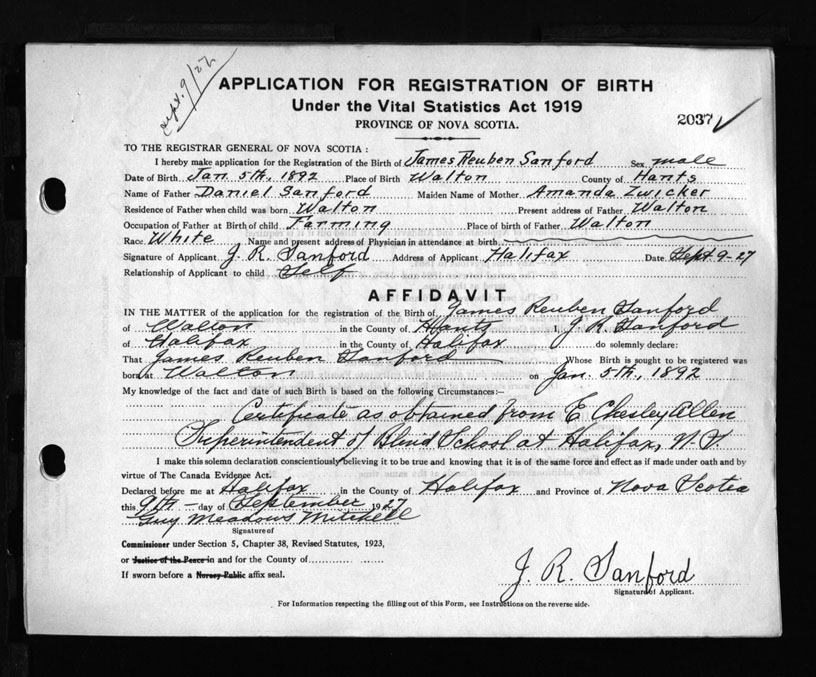 Sept. 9/27
APPLICATION FOR REGISTRATION OF BIRTH
Under the Vital Statistics Act 1919
PROVINCE OF NOVA SCOTIA.
2037
TO THE REGISTRAR GENERAL OF NOVA SCOTIA:
I hereby make application for the Registration of the Birth of James Reuben Sanford Sex male
Date of Birth Jan 5th, 1892 Place of Birth Walton County of Hants
Name of Father Daniel Sanford Maiden Name of Mother Amanda Zwicker
Residence of Father when child was born Walton Present address of Father Walton
Occupation of Father at Birth of child Farming Place of birth of Father Walton
Race White Name and present address of Physician in attendance at birth
Signature of Applicant J. R. Sanford Address of Applicant Halifax Date Sept 9-27
Relationship of Applicant to child Self
AFFIDAVIT
IN THE MATTER of the application for the registration of the Birth of James Reuben Sanford
of Walton in the County of Hants I, J. R. Sanford
of Halifax in the County of Halifax do solemnly declare:
That James Reuben Sanford Whose Birth is sought to be registered was
born at Walton on Jan. 5th, 1892
My knowledge of the fact and date of such Birth is based on the following Circumstances:—
Certificate as obtained from E. Chesley Allen
Superintendent of Blind School at Halifax, N.S
I make this solemn declaration conscientiously believing it to be true and knowing that it is of the same force and effect as if made under oath and by
virtue of The Canada Evidence Act.
Declared before me at Halifax in the County of Halifax and Province of Nova Scotia
this 9th day of September 1927
Guy Meadows Mitchell
Signature of
Commissioner under Section 5, Chapter 38, Revised Statutes, 1923,
or Justice of the Peace in and for the County of
If sworn before a Notary Public affix seal.
J. R. Sanford
Signature of Applicant.
For Information respecting the filling out of this Form, see Instructions on the reverse side.